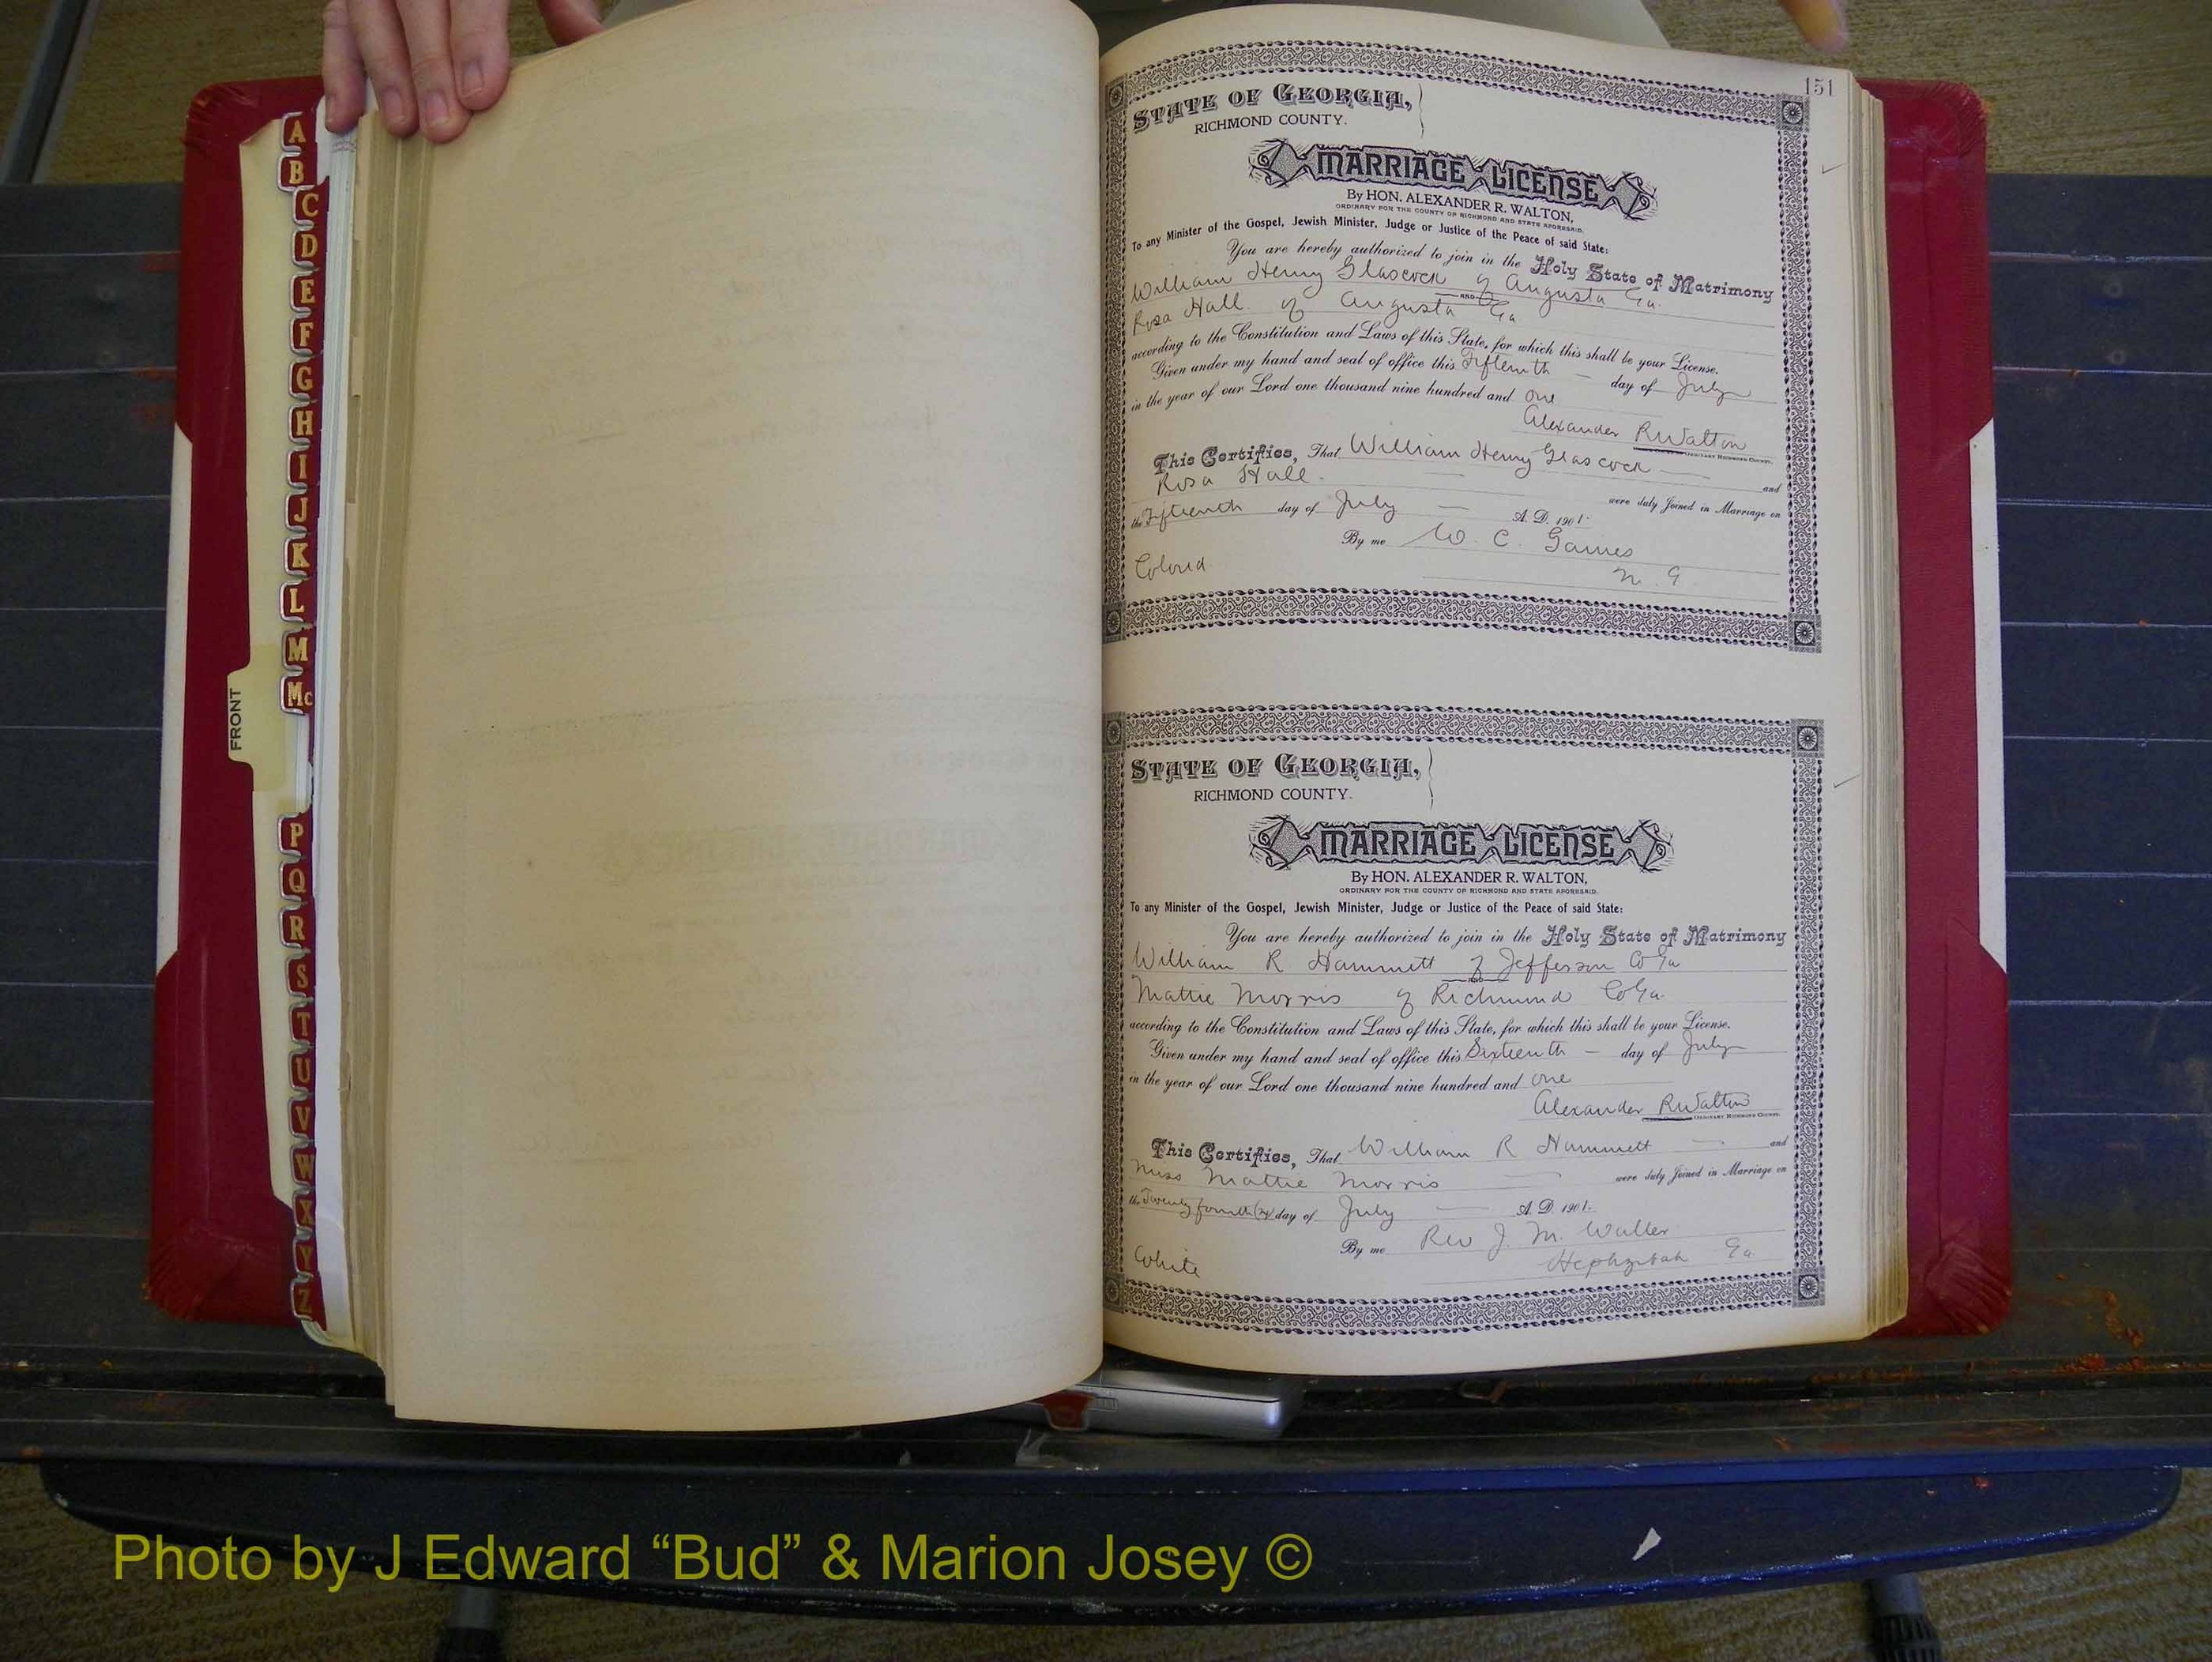 A
B
C
D
E
F
G
H
I
J
K
L
M
Mc
P
Q
R
S
T
U
V
W
X
Y
Z
FRONT
151
STATE OF GEORGIA,
RICHMOND COUNTY.
MARRIAGE LICENSE
By HON. ALEXANDER R. WALTON,
ORDINARY FOR THE COUNTY OF RICHMOND AND STATE AFORESAID.
To any Minister of the Gospel, Jewish Minister, Judge or Justice of the Peace of said State:
You are hereby authorized to join in the Holy State of Matrimony
William Henry Glascock of Augusta Ga.
AND
Rosa Hall of Augusta Ga
according to the Constitution and Laws of this State, for which this shall be your License.
Given under my hand and seal of office this Fifteenth day of July
in the year of our Lord one thousand nine hundred and one
Alexander R Walton
ORDINARY RICHMOND COUNTY.
This Certifies, That William Henry Glascock and
Rosa Hall were duly Joined in Marriage on
the Fifteenth day of July A. D. 1901.
By me W. C. Gaines
Colored
STATE OF GEORGIA,
RICHMOND COUNTY.
MARRIAGE LICENSE
By HON. ALEXANDER R. WALTON,
ORDINARY FOR THE COUNTY OF RICHMOND AND STATE AFORESAID.
To any Minister of the Gospel, Jewish Minister, Judge or Justice of the Peace of said State:
You are hereby authorized to join in the Holy State of Matrimony
William R Hammett of Jefferson Co Ga
AND
Mattie Morris of Richmond Co Ga.
according to the Constitution and Laws of this State, for which this shall be your License.
Given under my hand and seal of office this Sixteenth day of July
in the year of our Lord one thousand nine hundred and one
Alexander R Walton
ORDINARY RICHMOND COUNTY.
This Certifies, That William R Hammett and
Miss Mattie Morris were duly Joined in Marriage on
the Twenty fourth day of July A. D. 1901.
By me Rev J. M. Waller
White Hephzibah Ga.
Photo by J Edward “Bud” & Marion Josey ©